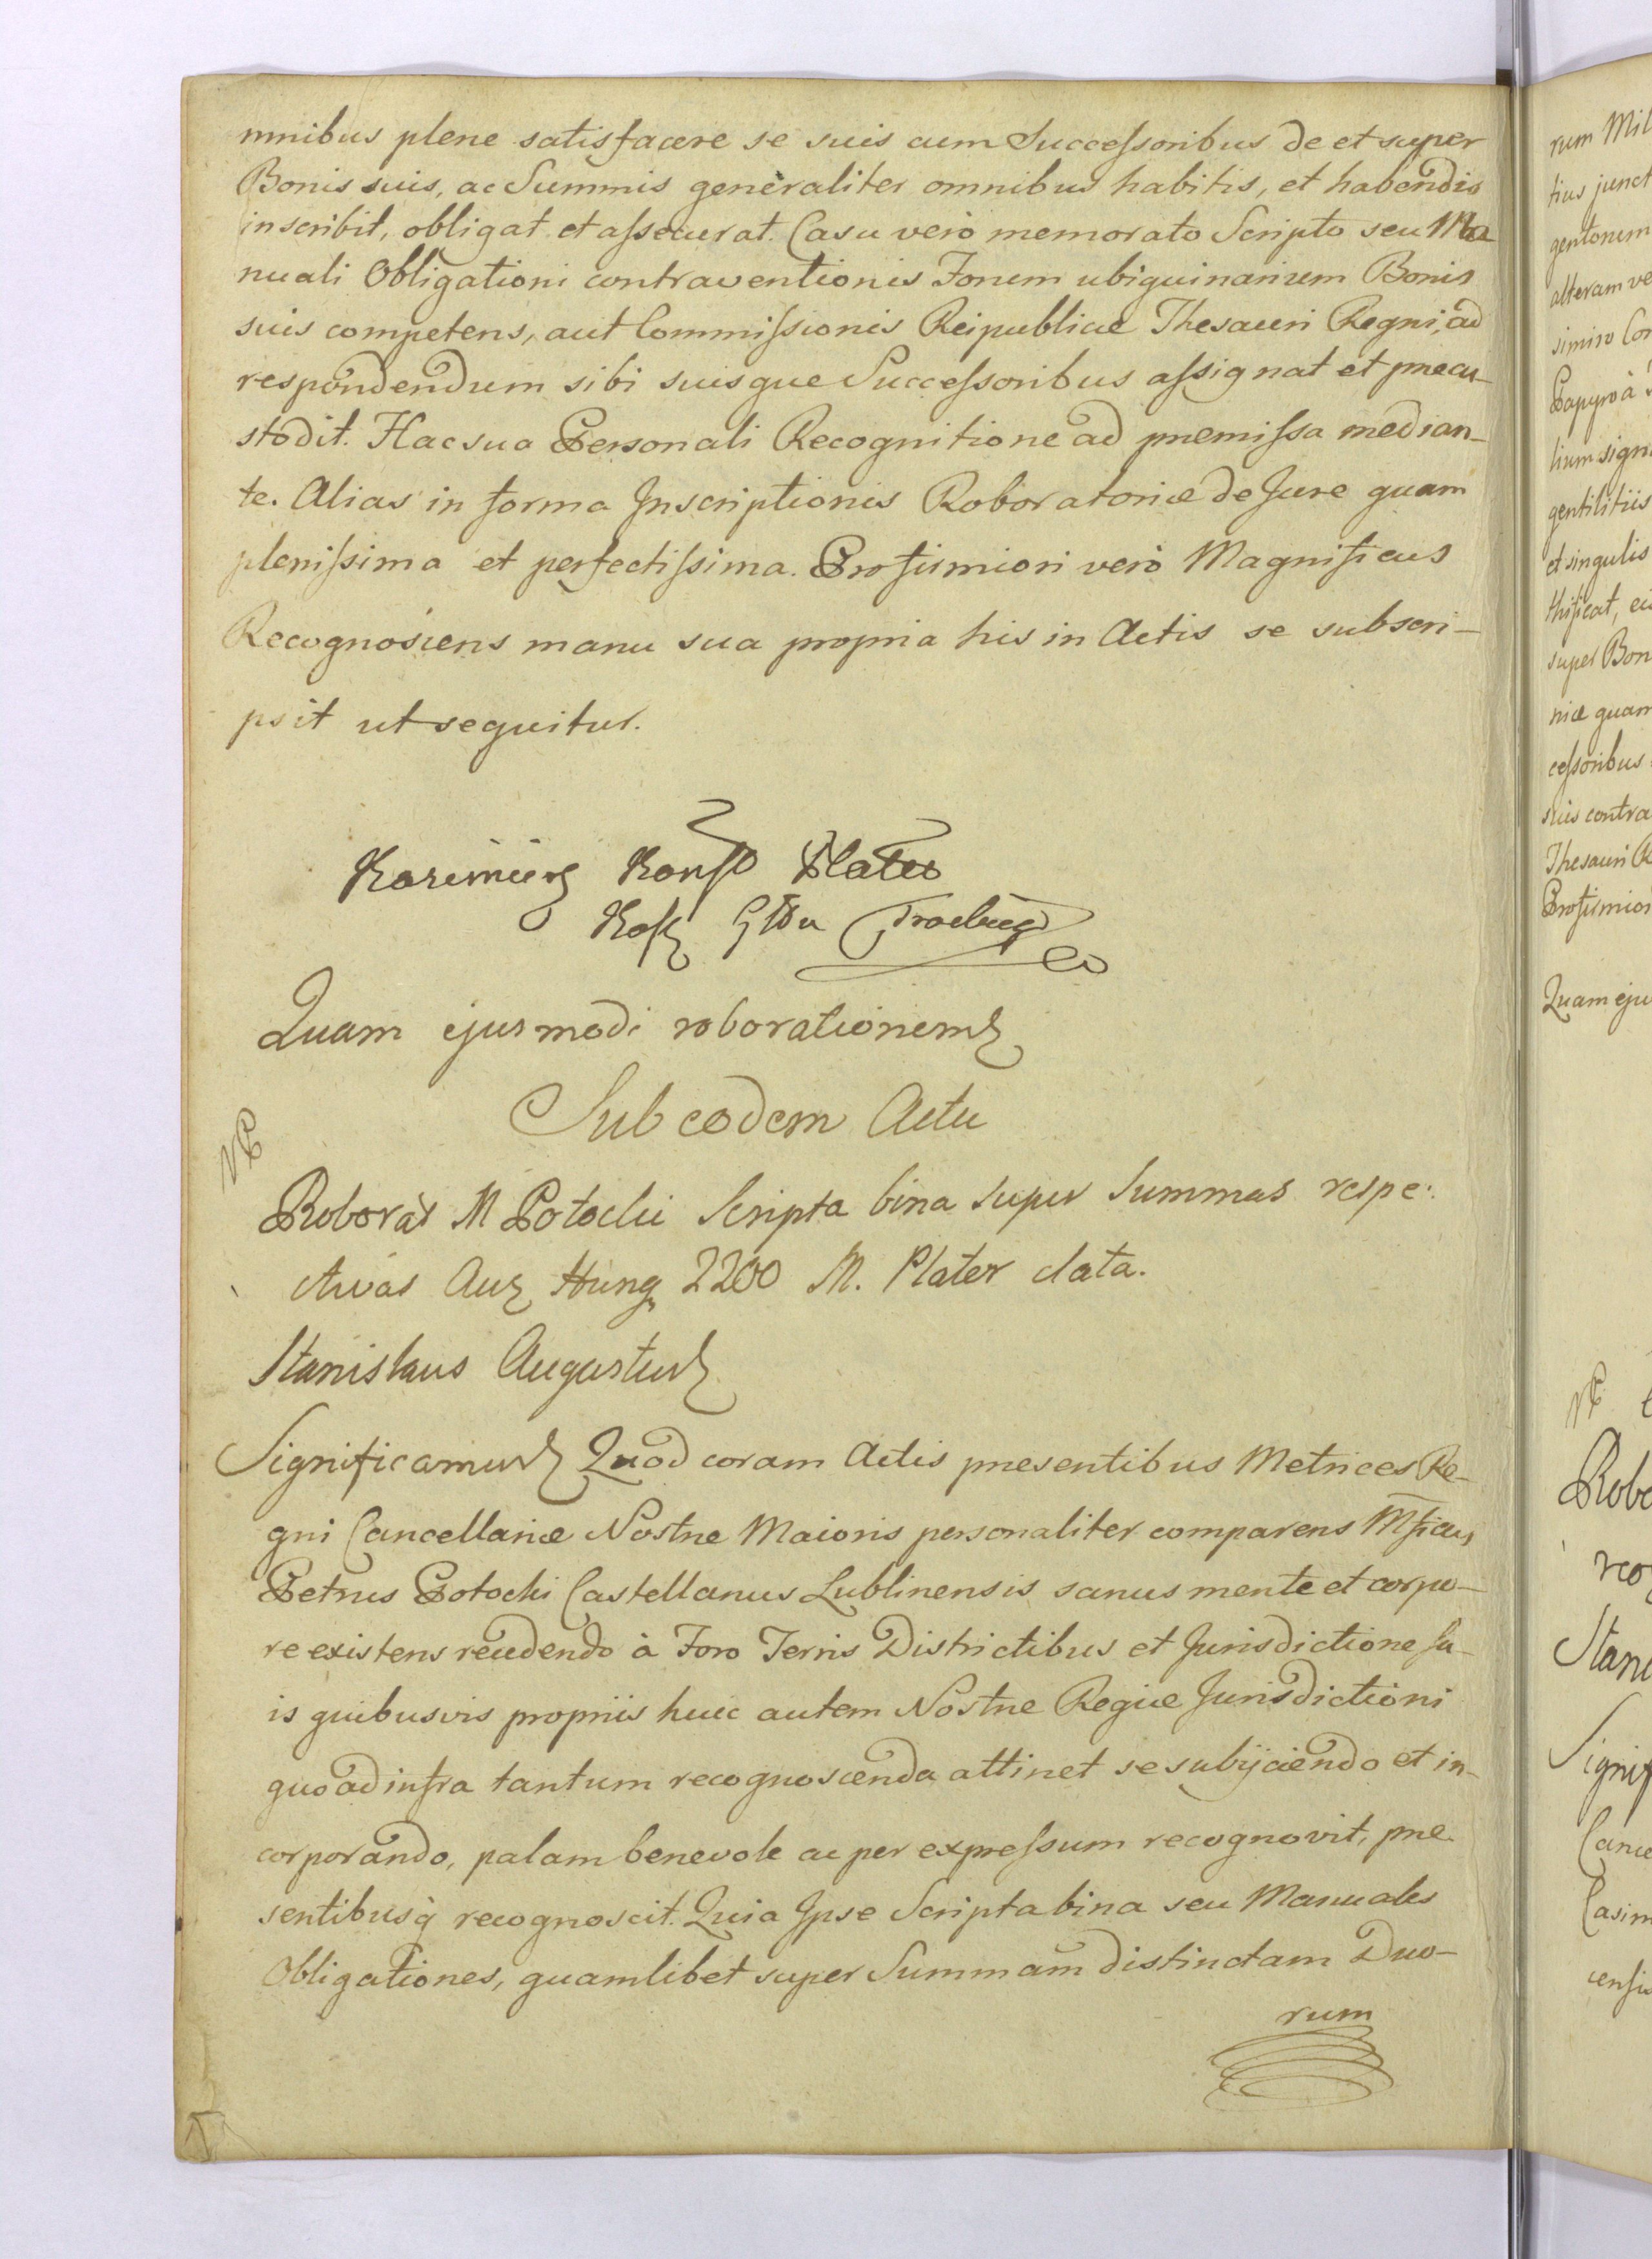 mnibus plene satisfacere se suis cum Successoribus de et super
Bonis suis, ac Summis generaliter omnibus habitis, et habendis
inscribit, obligat et assecurat. Casu verò memorato Scripto seu Ma
nuali Obligationi contraventionis Forum ubiquinarium Bonis
suis competens, aut Commissionis Reipublicæ Thesauri Regni, ad
respondendum sibi suisque Successoribus assignat et præcu-
stodit. Hac sua Personali Recognitione ad præmissa median-
te. Alias in forma Inscriptionis Roboratoriæ de Jure quam
plenissima et perfectissima. Pro firmiori verò Magnificus
Recognoscens manu sua propria his in Actis se subscri-
psit ut sequitur.
Kazimierz Konst Plater
Kasz Głłu Trocki
Quam ejusmodi roborationem
Sub eodem Actu
Roborat M Potocki Scripta bina super Summas respe:
ctivas Aur Hung 2200 M. Plater data.
Stanislaus Augustus
Significamus Quod coram Actis præsentibus Metrices Re-
gni Cancellariæ Nostræ Maioris personaliter comparens Mficus
Petrus Potocki Castellanus Lublinensis sanus mente et corpo-
re existens recedendo à Foro Terris Districtibus et Jurisdictione su-
is quibusvis propriis huic autem Nostræ Regiæ Jurisdictioni
quoad infra tantum recognoscenda attinet se subijciendo et in-
corporando, palam benevole ac per expressum recognovit, præ
sentibusq recognoscit. Quia Ipse Scripta bina seu Manuales
Obligationes, quamlibet super Summam distinctam Duo-
rum
rum Mil
tius junct
alteram ve
simiro Con
Papyro à
lium sign
gentilitiis
et singulis
thificat, ei
super Bon
riæ quam
cessoribus
suis contra
Thesauri R
Pro firmior
Quam eju
Robo
reo
Stani
Signif
Cance
Casim